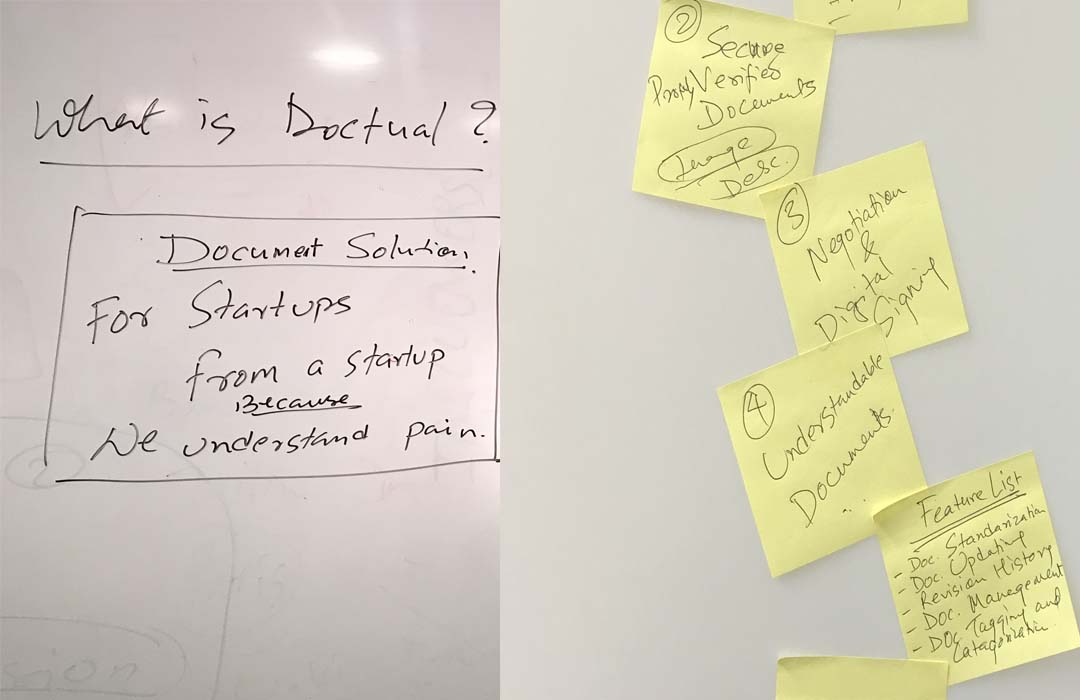 What is Doctual?
Document Solution.
For Startups
from a startup
Because
We understand pain.
②
Secure
Verified
Documents
Image
Desc.
③
Negotiation
&
Digital
Signing
④
Understandable
Documents.
Feature List
- Doc. Standarization
- Doc. Updating
- Revision History
- Doc. Management
- Doc. Tagging and
Catagorization.